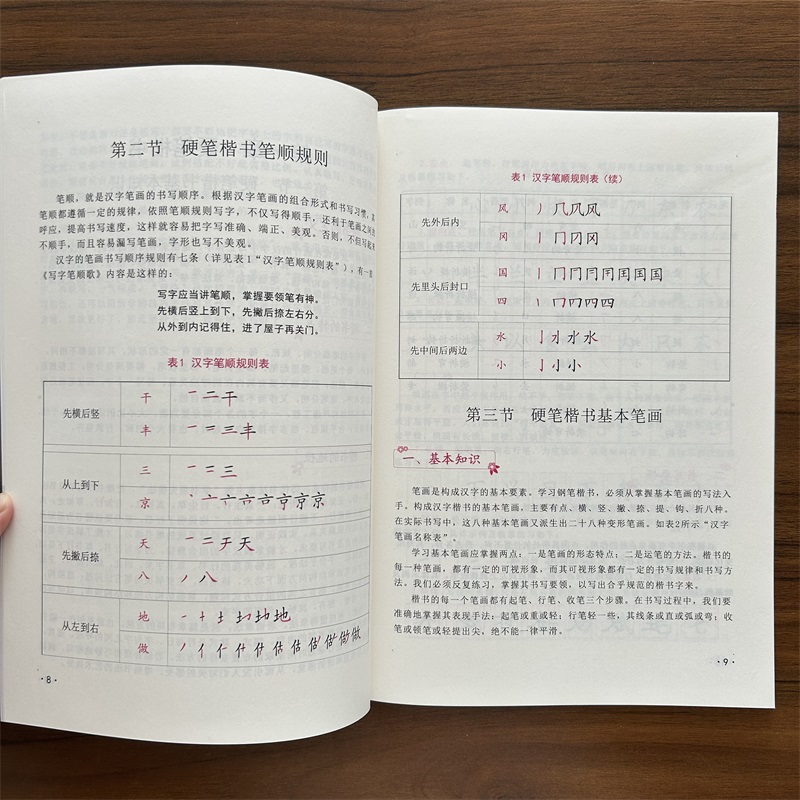 第二节 硬笔楷书笔顺规则
笔顺，就是汉字笔画的书写顺序。根据汉字笔画的组合形式和书写习惯，
笔顺都遵循一定的规律，依照笔顺规则写字，不仅写得顺手，还利于笔画之间
呼应，提高书写速度，这样就容易把字写准确、端正、美观。否则，不但写起来
不顺手，而且容易漏写笔画，字形也写不美观。
汉字的笔画书写顺序规则有七条（详见表1“汉字笔顺规则表”），有一
《写字笔顺歌》内容是这样的：
写字应当讲笔顺，掌握要领笔有神。
先横后竖上到下，先撇后捺左右分。
从外到内记得住，进了屋子再关门。
表1 汉字笔顺规则表
先横后竖
干 一二干
丰 一二三丰
从上到下
三 一二三
京 丶亠亠京
先撇后捺
天 一二于天
八 丿八
从左到右
地 一十土地
做 丿亻做
·8·
表1 汉字笔顺规则表（续）
先外后内
风 丿几凡风
冈 丨冂冈冈
先里头后封口
国 丨冂国
四 丨冂四四
先中间后两边
水 亅水水
小 亅小小
第三节 硬笔楷书基本笔画
一、基本知识
笔画是构成汉字的基本要素。学习钢笔楷书，必须从掌握基本笔画的写法入
手。构成汉字楷书的基本笔画，主要有点、横、竖、撇、捺、提、钩、折八种。
在实际书写中，这八种基本笔画又派生出二十八种变形笔画。如表2所示“汉字
笔画名称表”。
学习基本笔画应掌握两点：一是笔画的形态特点；二是运笔的方法。楷书的
每一种笔画，都有一定的可视形象，而其可视形象都有一定的书写规律和书写方
法。我们必须反复练习，掌握其书写要领，以写出合乎规范的楷书字来。
楷书的每一个笔画都有起笔、行笔、收笔三个步骤。在书写过程中，我们要
准确地掌握其表现手法：起笔或重或轻；行笔轻一些，其线条或直或弧或弯；收
笔或顿笔或轻提出尖，绝不能一律平滑。
·9·